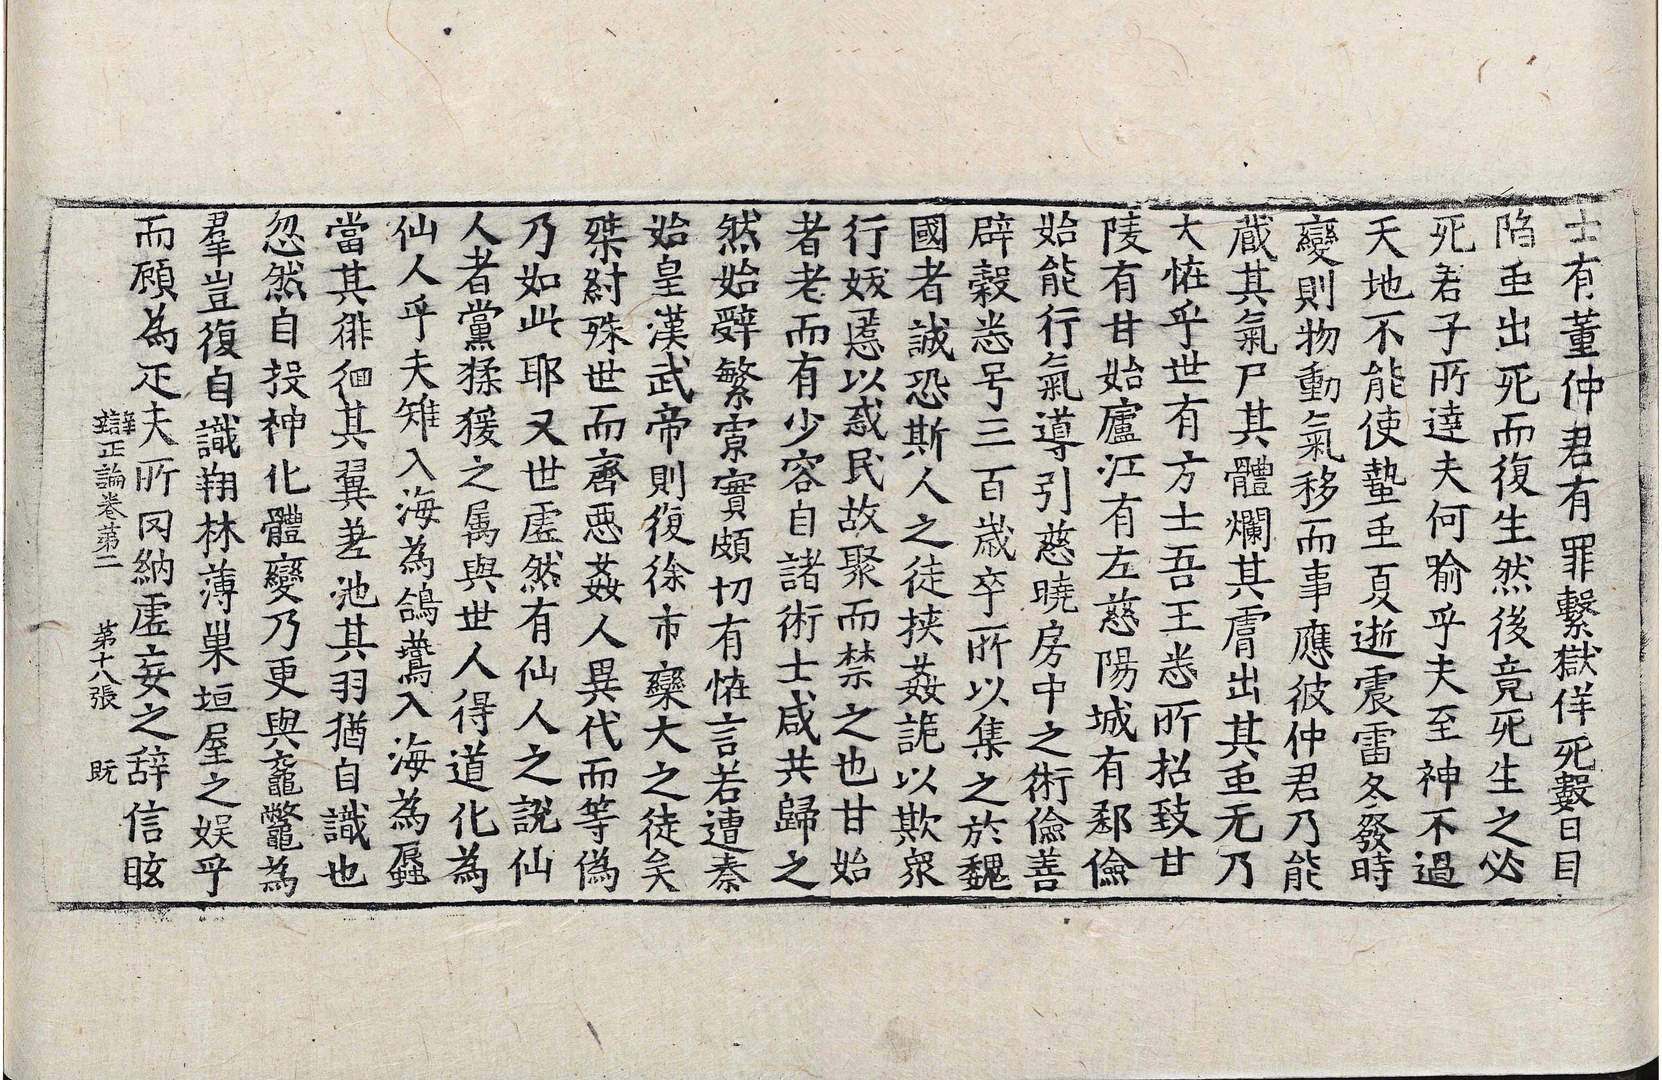 士有董仲君有罪繫獄佯死數日目
陷虫出死而復生然後竟死生之必
死君子所達夫何喻乎夫至神不過
天地不能使蟄虫夏逝震雷冬發時
變則物動氣移而事應彼仲君乃能
藏其氣尸其體爛其膚出其虫无乃
大恠乎世有方士吾王悉所招致甘
陵有甘始廬江有左慈陽城有郄儉
始能行氣導引慈曉房中之術儉善
辟穀悉号三百歲卒所以集之於魏
國者誠恐斯人之徒挾姦詭以欺衆
行妖慝以惑民故聚而禁之也甘始
者老而有少容自諸術士咸共歸之
然始辭繁寡實頗切有恠言若遭秦
始皇漢武帝則復徐市欒大之徒矣
桀紂殊世而齊惡姦人異代而等偽
乃如此耶又世虛然有仙人之說仙
人者黨猱猨之属與世人得道化為
仙人乎夫雉入海為鴿鷰入海為蜃
當其徘徊其翼差池其羽猶自識也
忽然自投神化體變乃更與黿鼈為
羣豈復自識翔林薄巢垣屋之娛乎
而顧為疋夫所罔納虛妄之辭信眩
辯正論卷第二 第十八張 既